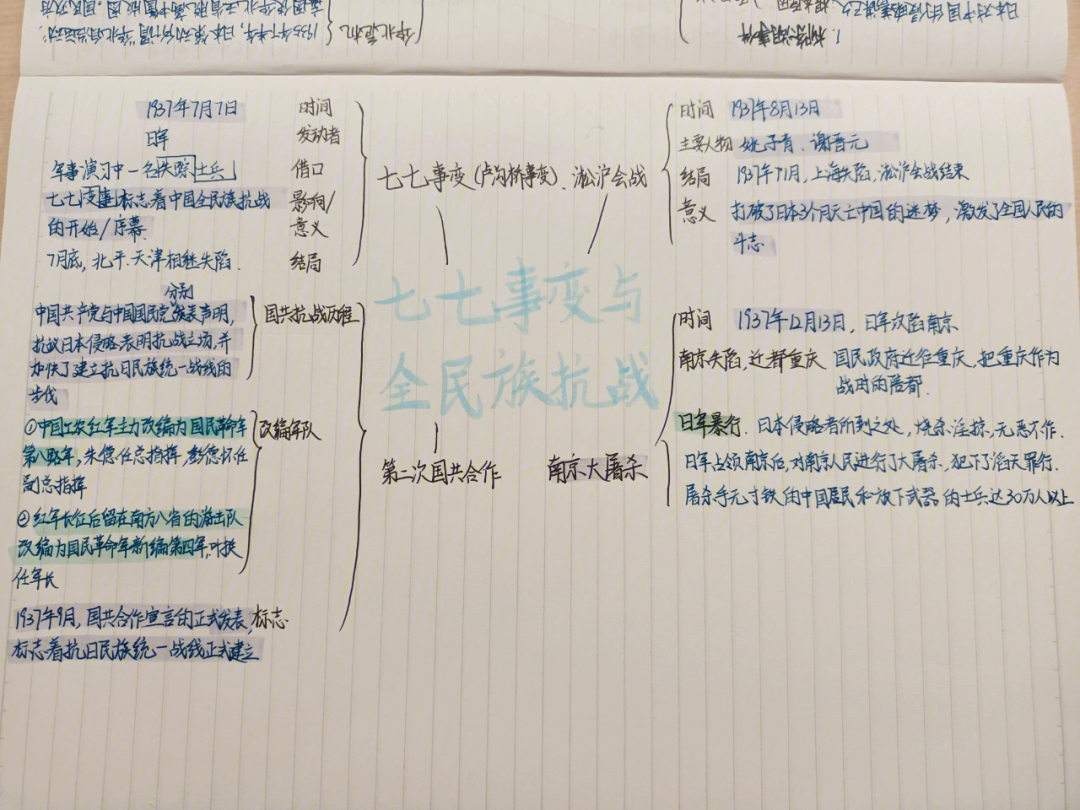 七七事变与
全民族抗战
七七事变(卢沟桥事变)、淞沪会战
1937年7月7日 时间
日军 发动者
军事演习中一名失踪士兵 借口
七七事变标志着中国全民族抗战
的开始/序幕
影响/
意义
7月底,北平、天津相继失陷. 结局
时间 1937年8月13日
主要人物 姚子青、谢晋元
结局 1937年11月,上海失陷,淞沪会战结束
意义 打破了日本3个月灭亡中国的迷梦,激发了全国人民的
斗志.
第二次国共合作
国共抗战历程
分别
中国共产党与中国国民党发表声明,
抗议日本侵略,表明抗战立场,并
加快了建立抗日民族统一战线的
步伐
改编军队
①中国工农红军主力改编为国民革命军
第八路军,朱德任总指挥,彭德怀任
副总指挥
②红军长征后留在南方八省的游击队
改编为国民革命军新编第四军,叶挺
任军长
1937年9月,国共合作宣言的正式发表, 标志
标志着抗日民族统一战线正式建立
南京大屠杀
时间 1937年12月13日,日军攻陷南京
南京失陷,迁都重庆 国民政府迁往重庆,把重庆作为
战时的陪都.
日军暴行. 日本侵略者所到之处,烧杀淫掠,无恶不作.
日军占领南京后,对南京人民进行了大屠杀,犯下了滔天罪行.
屠杀手无寸铁的中国居民和放下武器的士兵达30万人以上